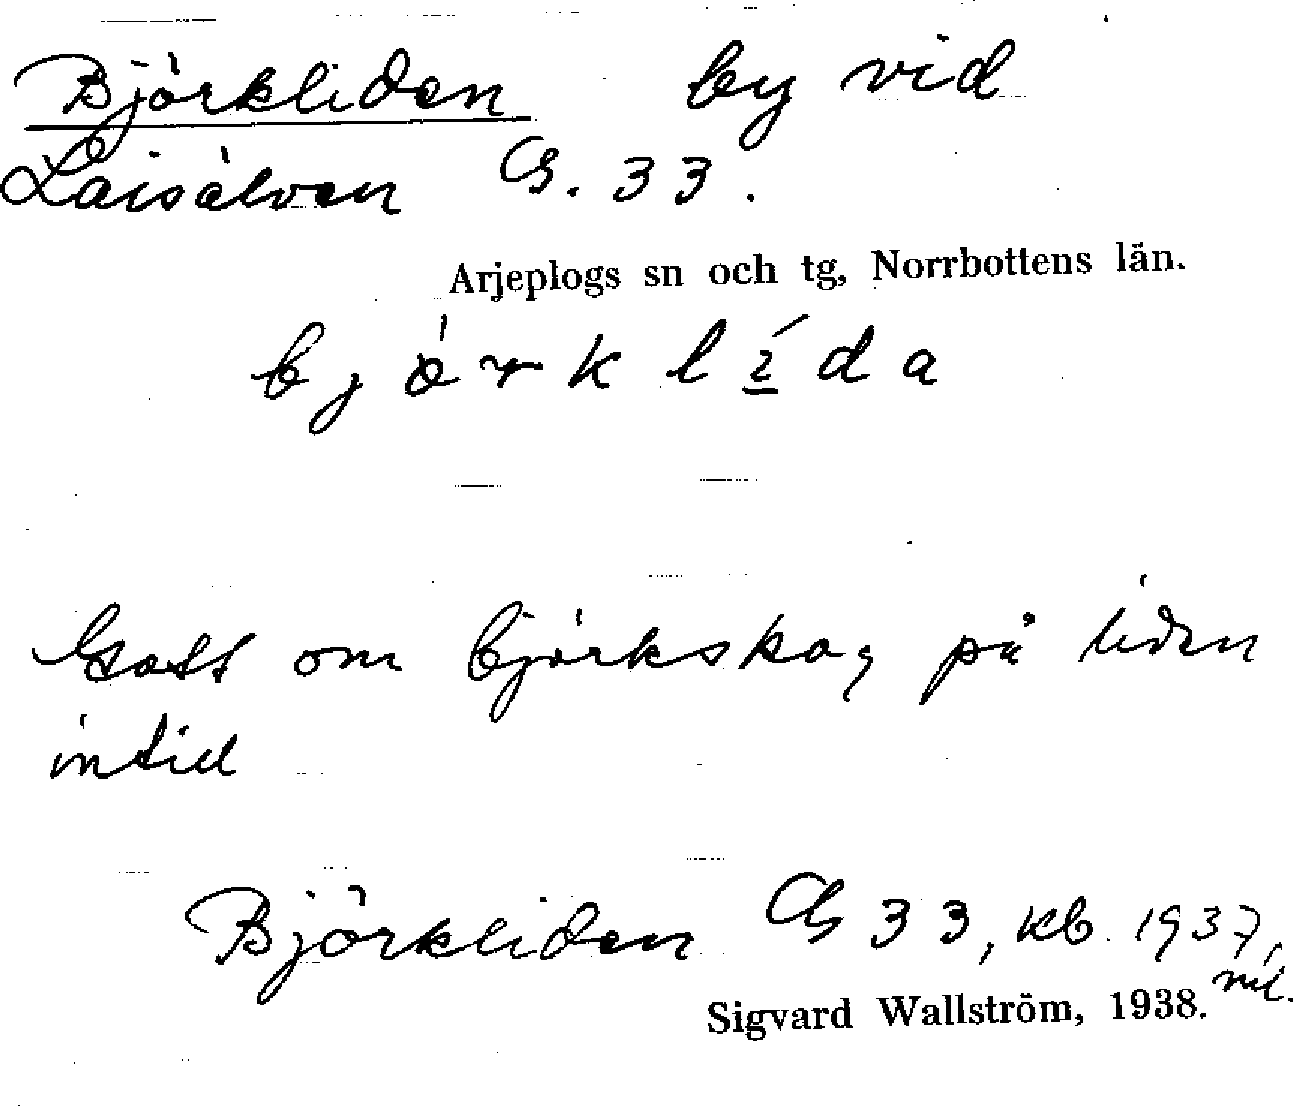 Björkliden by vid
Laisälven G. 33.
Arjeplogs sn och tg, Norrbottens län.
björklída
Gott om björkskog på liden
intill
Björkliden G 33, kb 1937,
Sigvard Wallström, 1938.